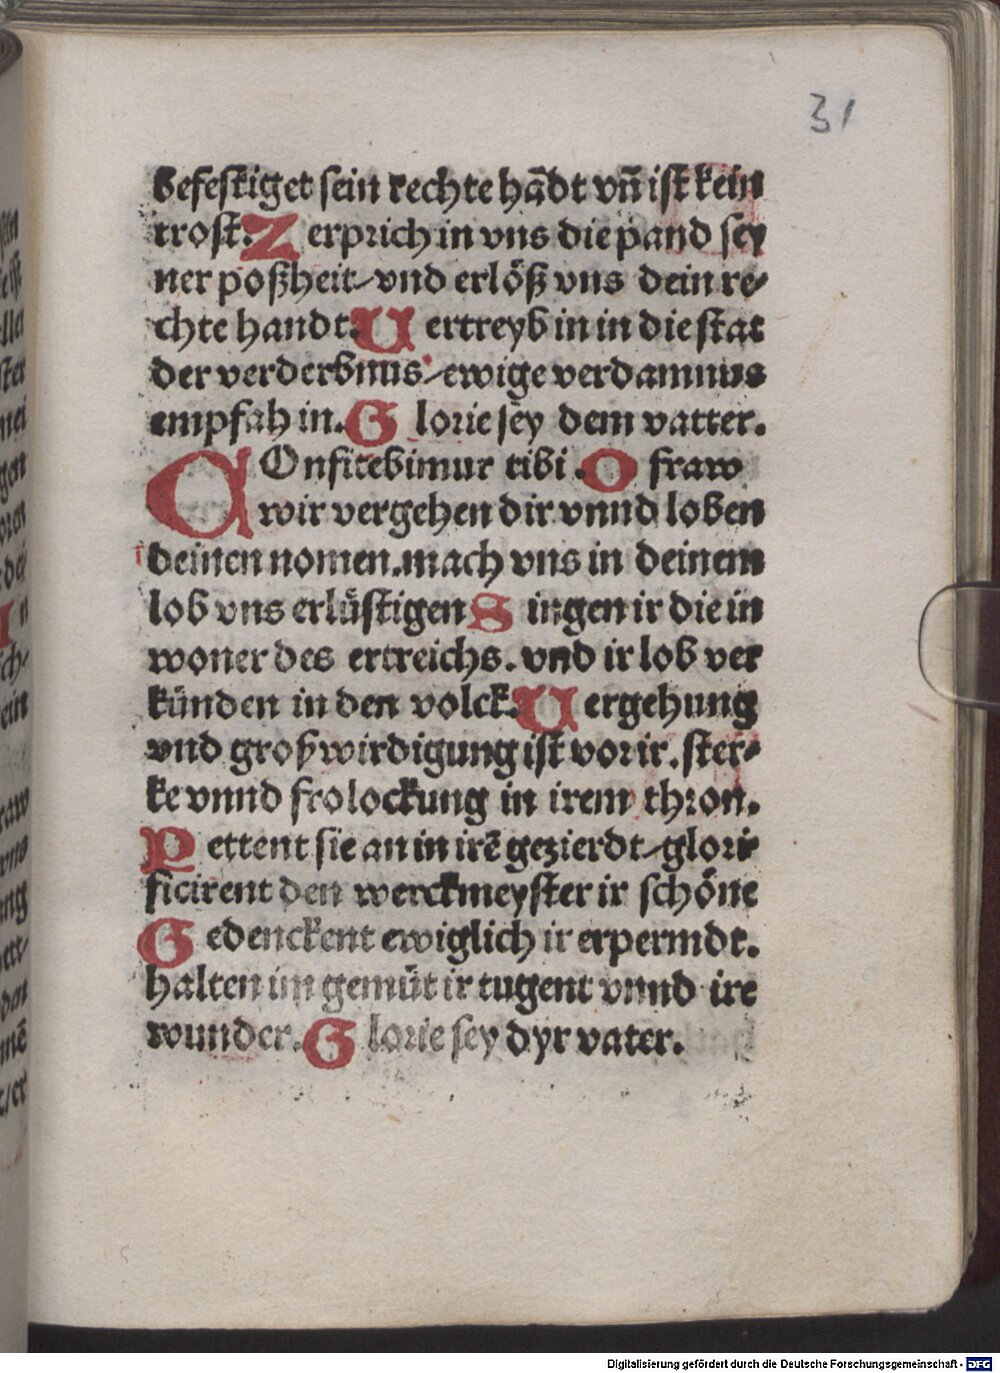 31
befestiget sein rechte hādt vn̄ ist kein
trost. Zerprich in vns die pand sey
ner poßheit/ vnd erlöß vns dein re⸗
chte handt. Uertreyb in in die stat
der verderbnus/ ewige verdamnus
empfah in. Glorie sey dem vatter.
COnfitebimur tibi. O fraw
wir vergehen dir vnnd loben
deinen nomen. mach vns in deinem
lob vns erlüstigen Singen ir die in
woner des ertreichs. vnd ir lob ver
künden in den volck. Uergehung
vnd großwirdigung ist vor ir. ster⸗
ke vnnd frolockung in irem thron.
Pettent sie an in irē gezierdt/ glori⸗
ficirent den werckmeyster ir schöne
Gedenckent ewiglich ir erpermdt.
halten im gemüt ir tugent vnnd ire
wunder. Glorie sey dyr vater.
Digitalisierung gefördert durch die Deutsche Forschungsgemeinschaft - DFG